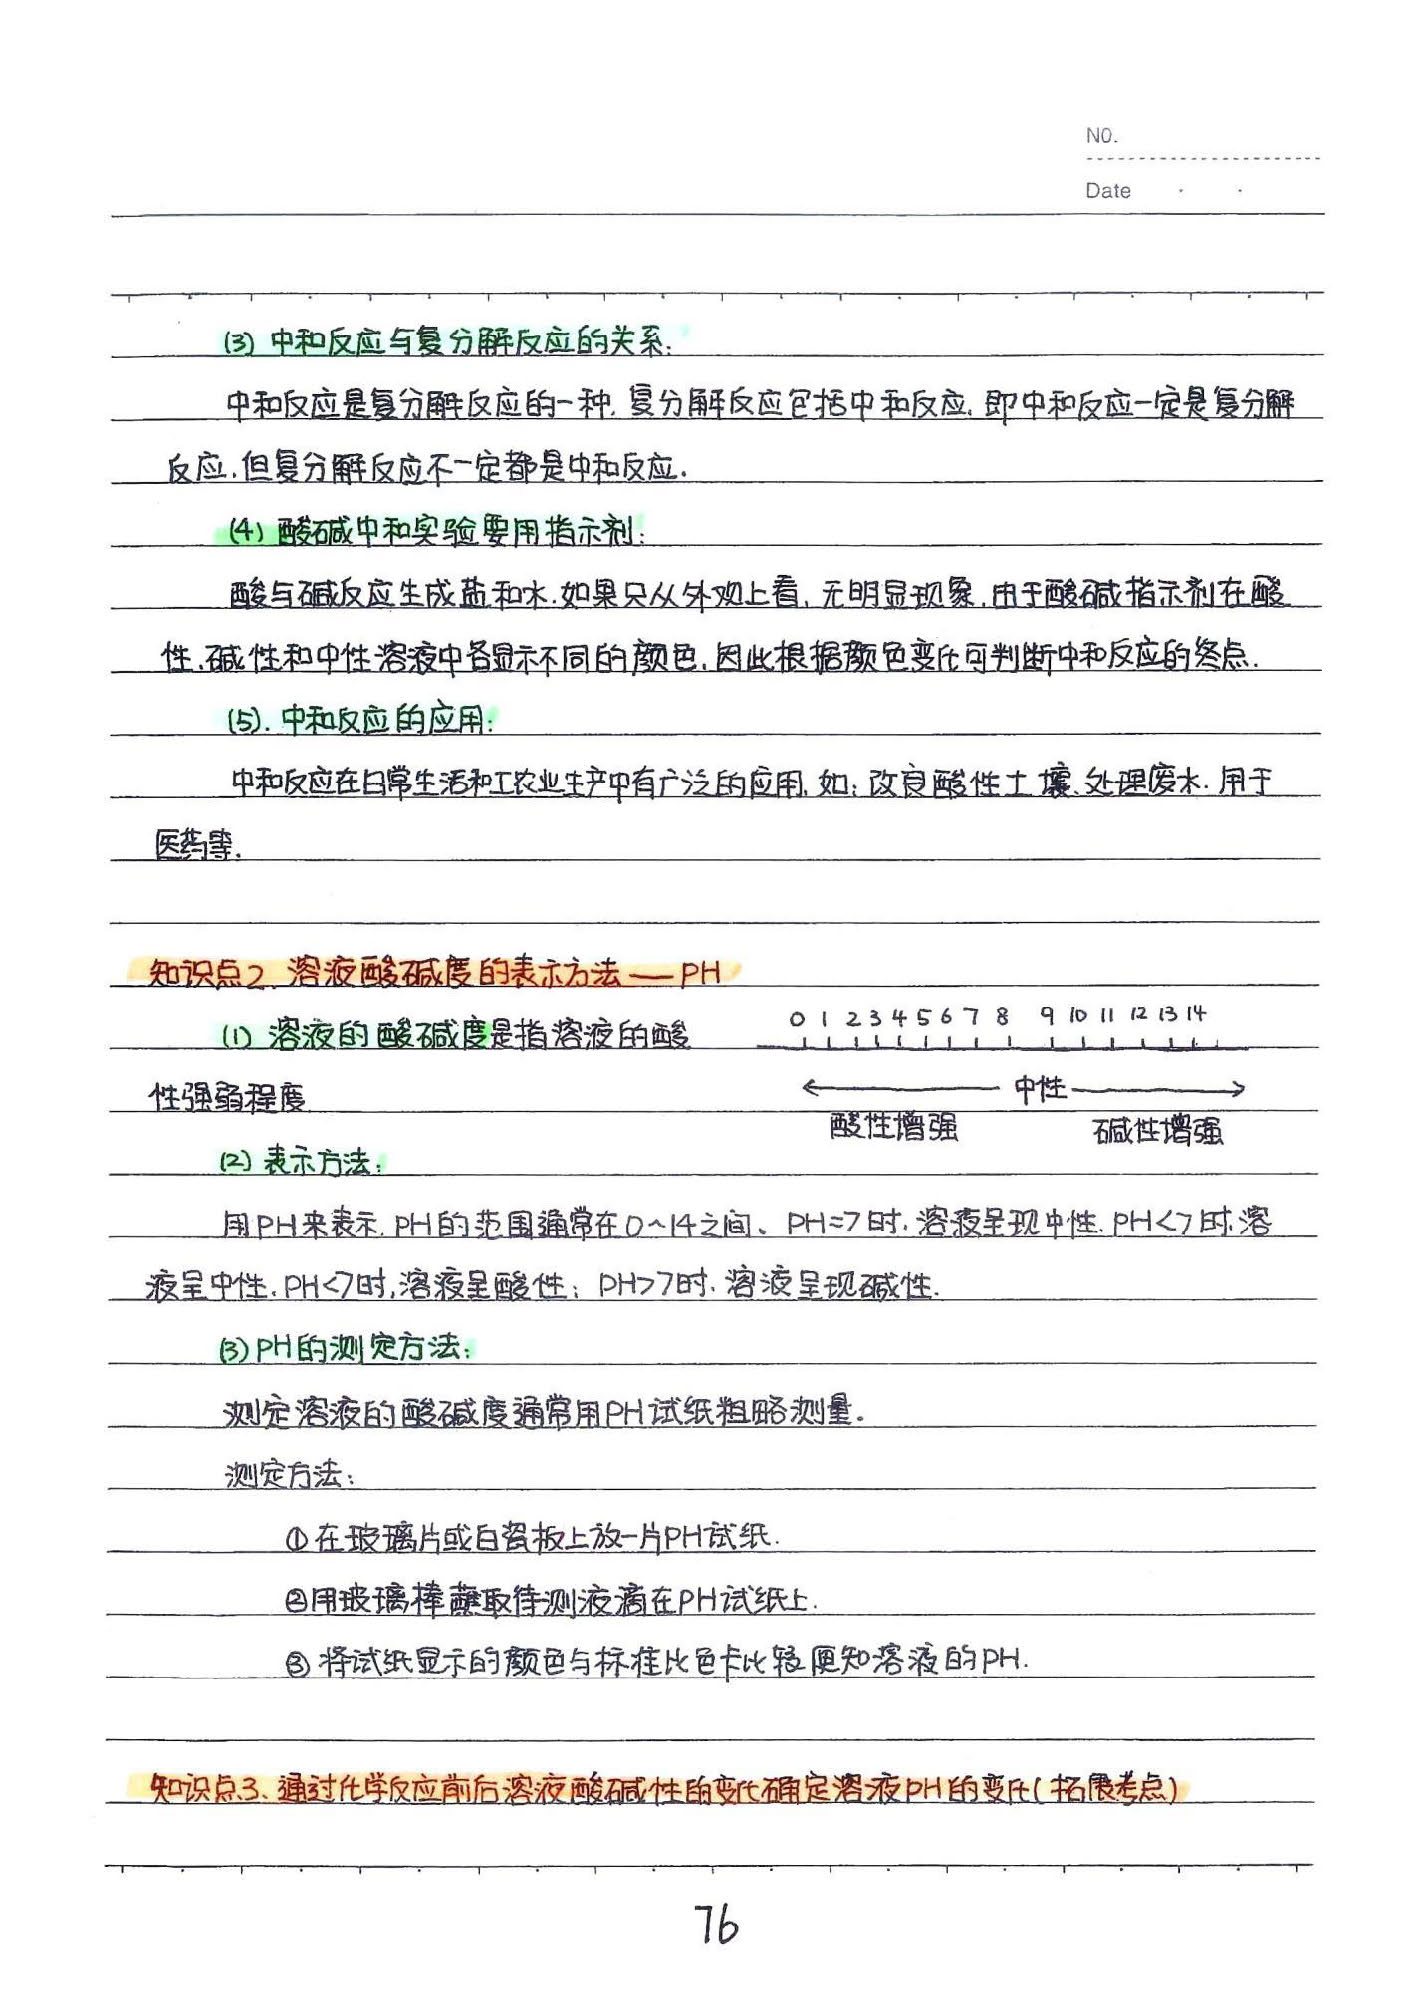 NO.
Date
(3) 中和反应与复分解反应的关系:
中和反应是复分解反应的一种,复分解反应包括中和反应,即中和反应一定是复分解
反应,但复分解反应不一定都是中和反应.
(4) 酸碱中和实验要用指示剂:
酸与碱反应生成盐和水.如果只从外观上看,无明显现象,由于酸碱指示剂在酸
性、碱性和中性溶液中各显示不同的颜色,因此根据颜色变化可判断中和反应的终点.
(5). 中和反应的应用:
中和反应在日常生活和工农业生产中有广泛的应用,如:改良酸性土壤、处理废水.用于
医药等.
知识点2、溶液酸碱度的表示方法——PH
(1) 溶液的酸碱度是指溶液的酸
性强弱程度
0 1 2 3 4 5 6 7 8 9 10 11 12 13 14
中性
酸性增强 碱性增强
(2) 表示方法:
用PH来表示.PH的范围通常在0~14之间、PH=7时,溶液呈现中性.PH<7时,溶
液呈中性.PH<7时,溶液呈酸性;PH>7时,溶液呈现碱性.
(3) PH的测定方法:
测定溶液的酸碱度通常用PH试纸粗略测量。
测定方法:
①在玻璃片或白瓷板上放一片PH试纸.
②用玻璃棒蘸取待测液滴在PH试纸上.
③将试纸显示的颜色与标准比色卡比较便知溶液的PH.
知识点3、通过化学反应前后溶液酸碱性的变化确定溶液PH的变化(拓展考点)
76